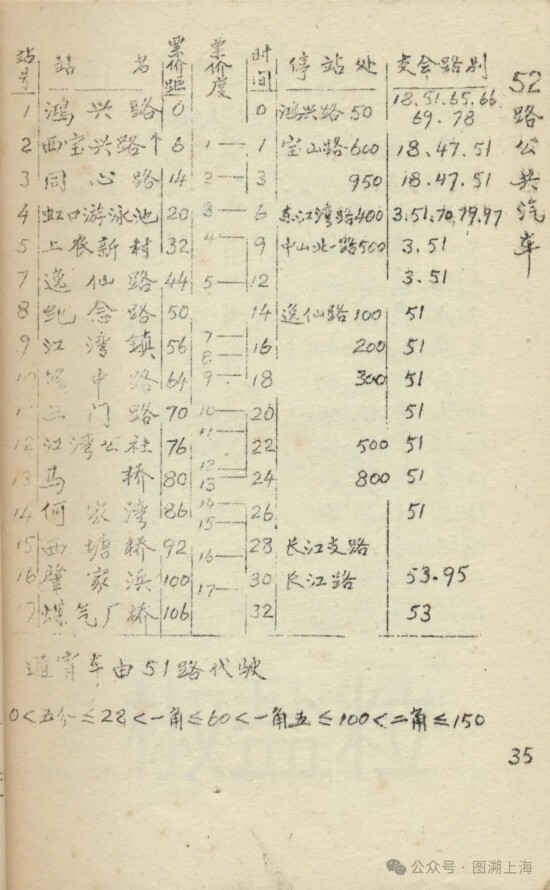 52路公共汽车
站号 站名 票价距 票价度 时间 停站处 交会路别
1 鸿兴路 0 0 鸿兴路 50 18.51.65.66.
69.78
2 西宝兴路↑ 6 1 1 宝山路 600 18.47.51
3 同心路 14 2 3 950 18.47.51
4 虹口游泳池 20 3 6 东江湾路 400 3.51.70.79.97
5 上农新村 32 4 9 中山北一路 500 3.51
7 逸仙路 44 5 12 3.51
8 纪念路 50 14 逸仙路 100 51
9 江湾镇 56 7 8 16 200 51
10 中路 64 9 18 300 51
11 三门路 70 10 20 51
12 江湾公社 76 11 22 500 51
13 马桥 80 12 13 24 800 51
14 何家湾 86 14 15 26 51
15 西塘桥 92 16 28 长江支路
16 家浜 100 17 30 长江路 53.95
17 煤气厂桥 106 32 53
通宵车由51路代驶
0<五分≤28<一角≤60<一角五≤100<二角≤150
35
公众号·图溯上海